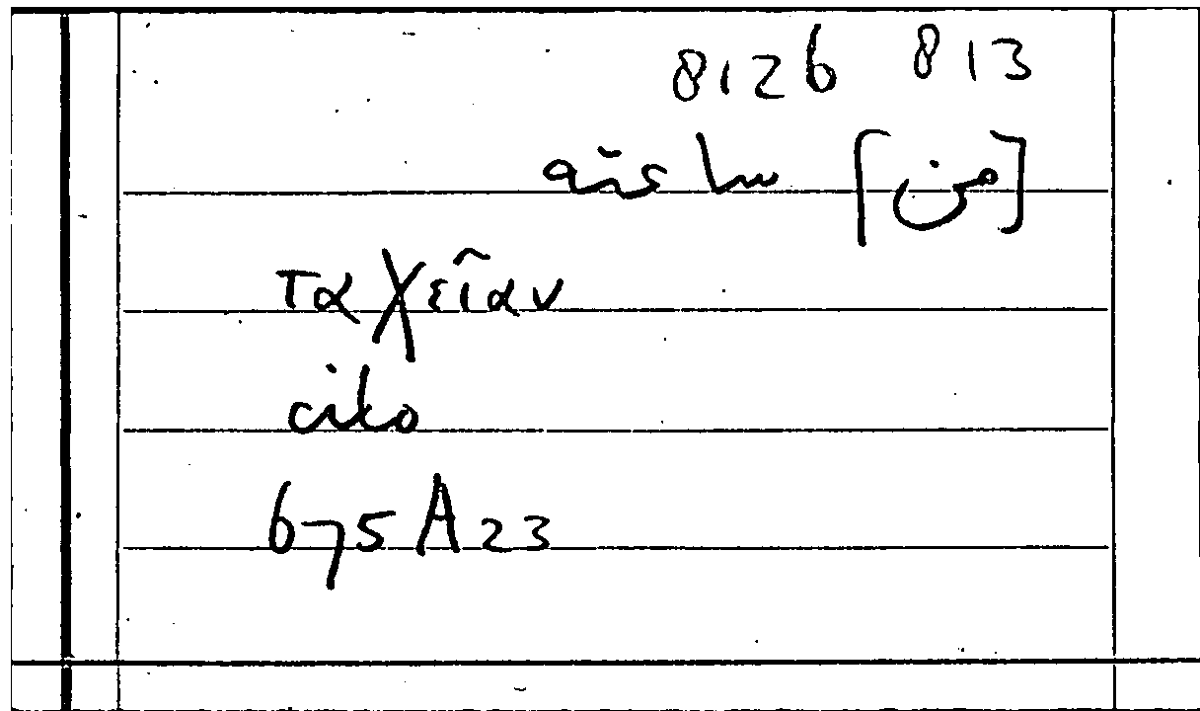 8126 813
[من] ساعته
ταχεῖαν
cito
675A23